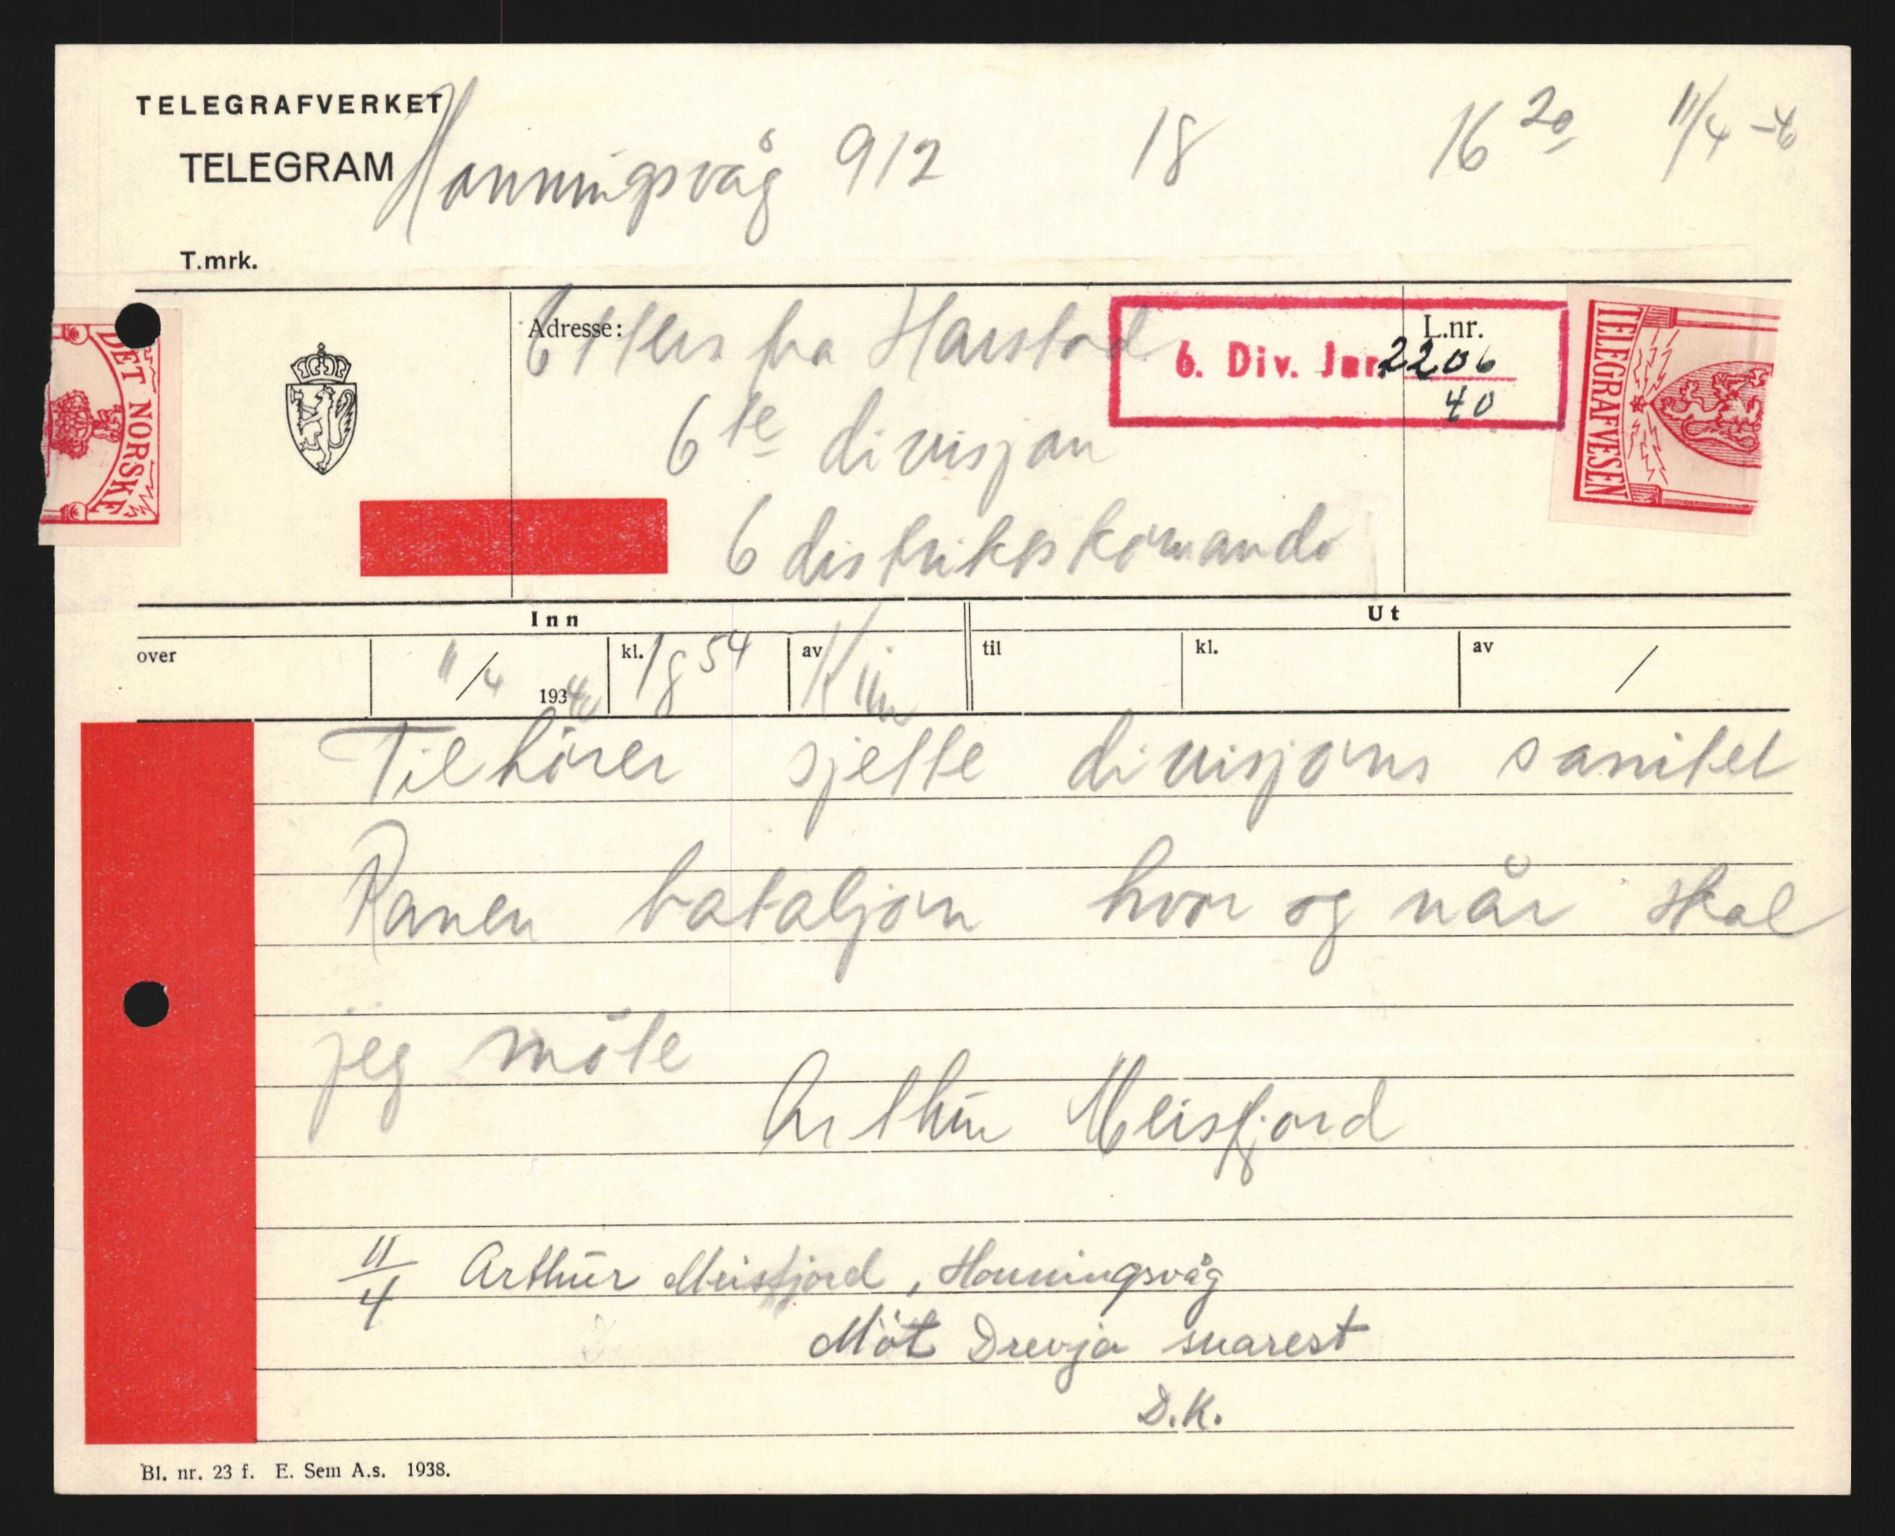 TELEGRAFVERKET
TELEGRAM
Honningsvåg 912 18 16 20 11/4 -40
T.mrk.
Adresse:
Etters fra Harstad
L.nr.
6. Div. Jør. 2206
40
6te divisjon
6 distriktskomando
DET NORSKE
TELEGRAFVESEN
Inn
Ut
over
11/4 1940
kl. 18 54
av
til
kl.
av
/
Tilhörer sjette divisjons sanitet
Ranen bataljon hvor og når skal
jeg möte
Arthur Meisfjord
11/4 Arthur Meisfjord, Honningsvåg
Möt Drevja snarest
D.K.
Bl. nr. 23 f. E. Sem A.s. 1938.